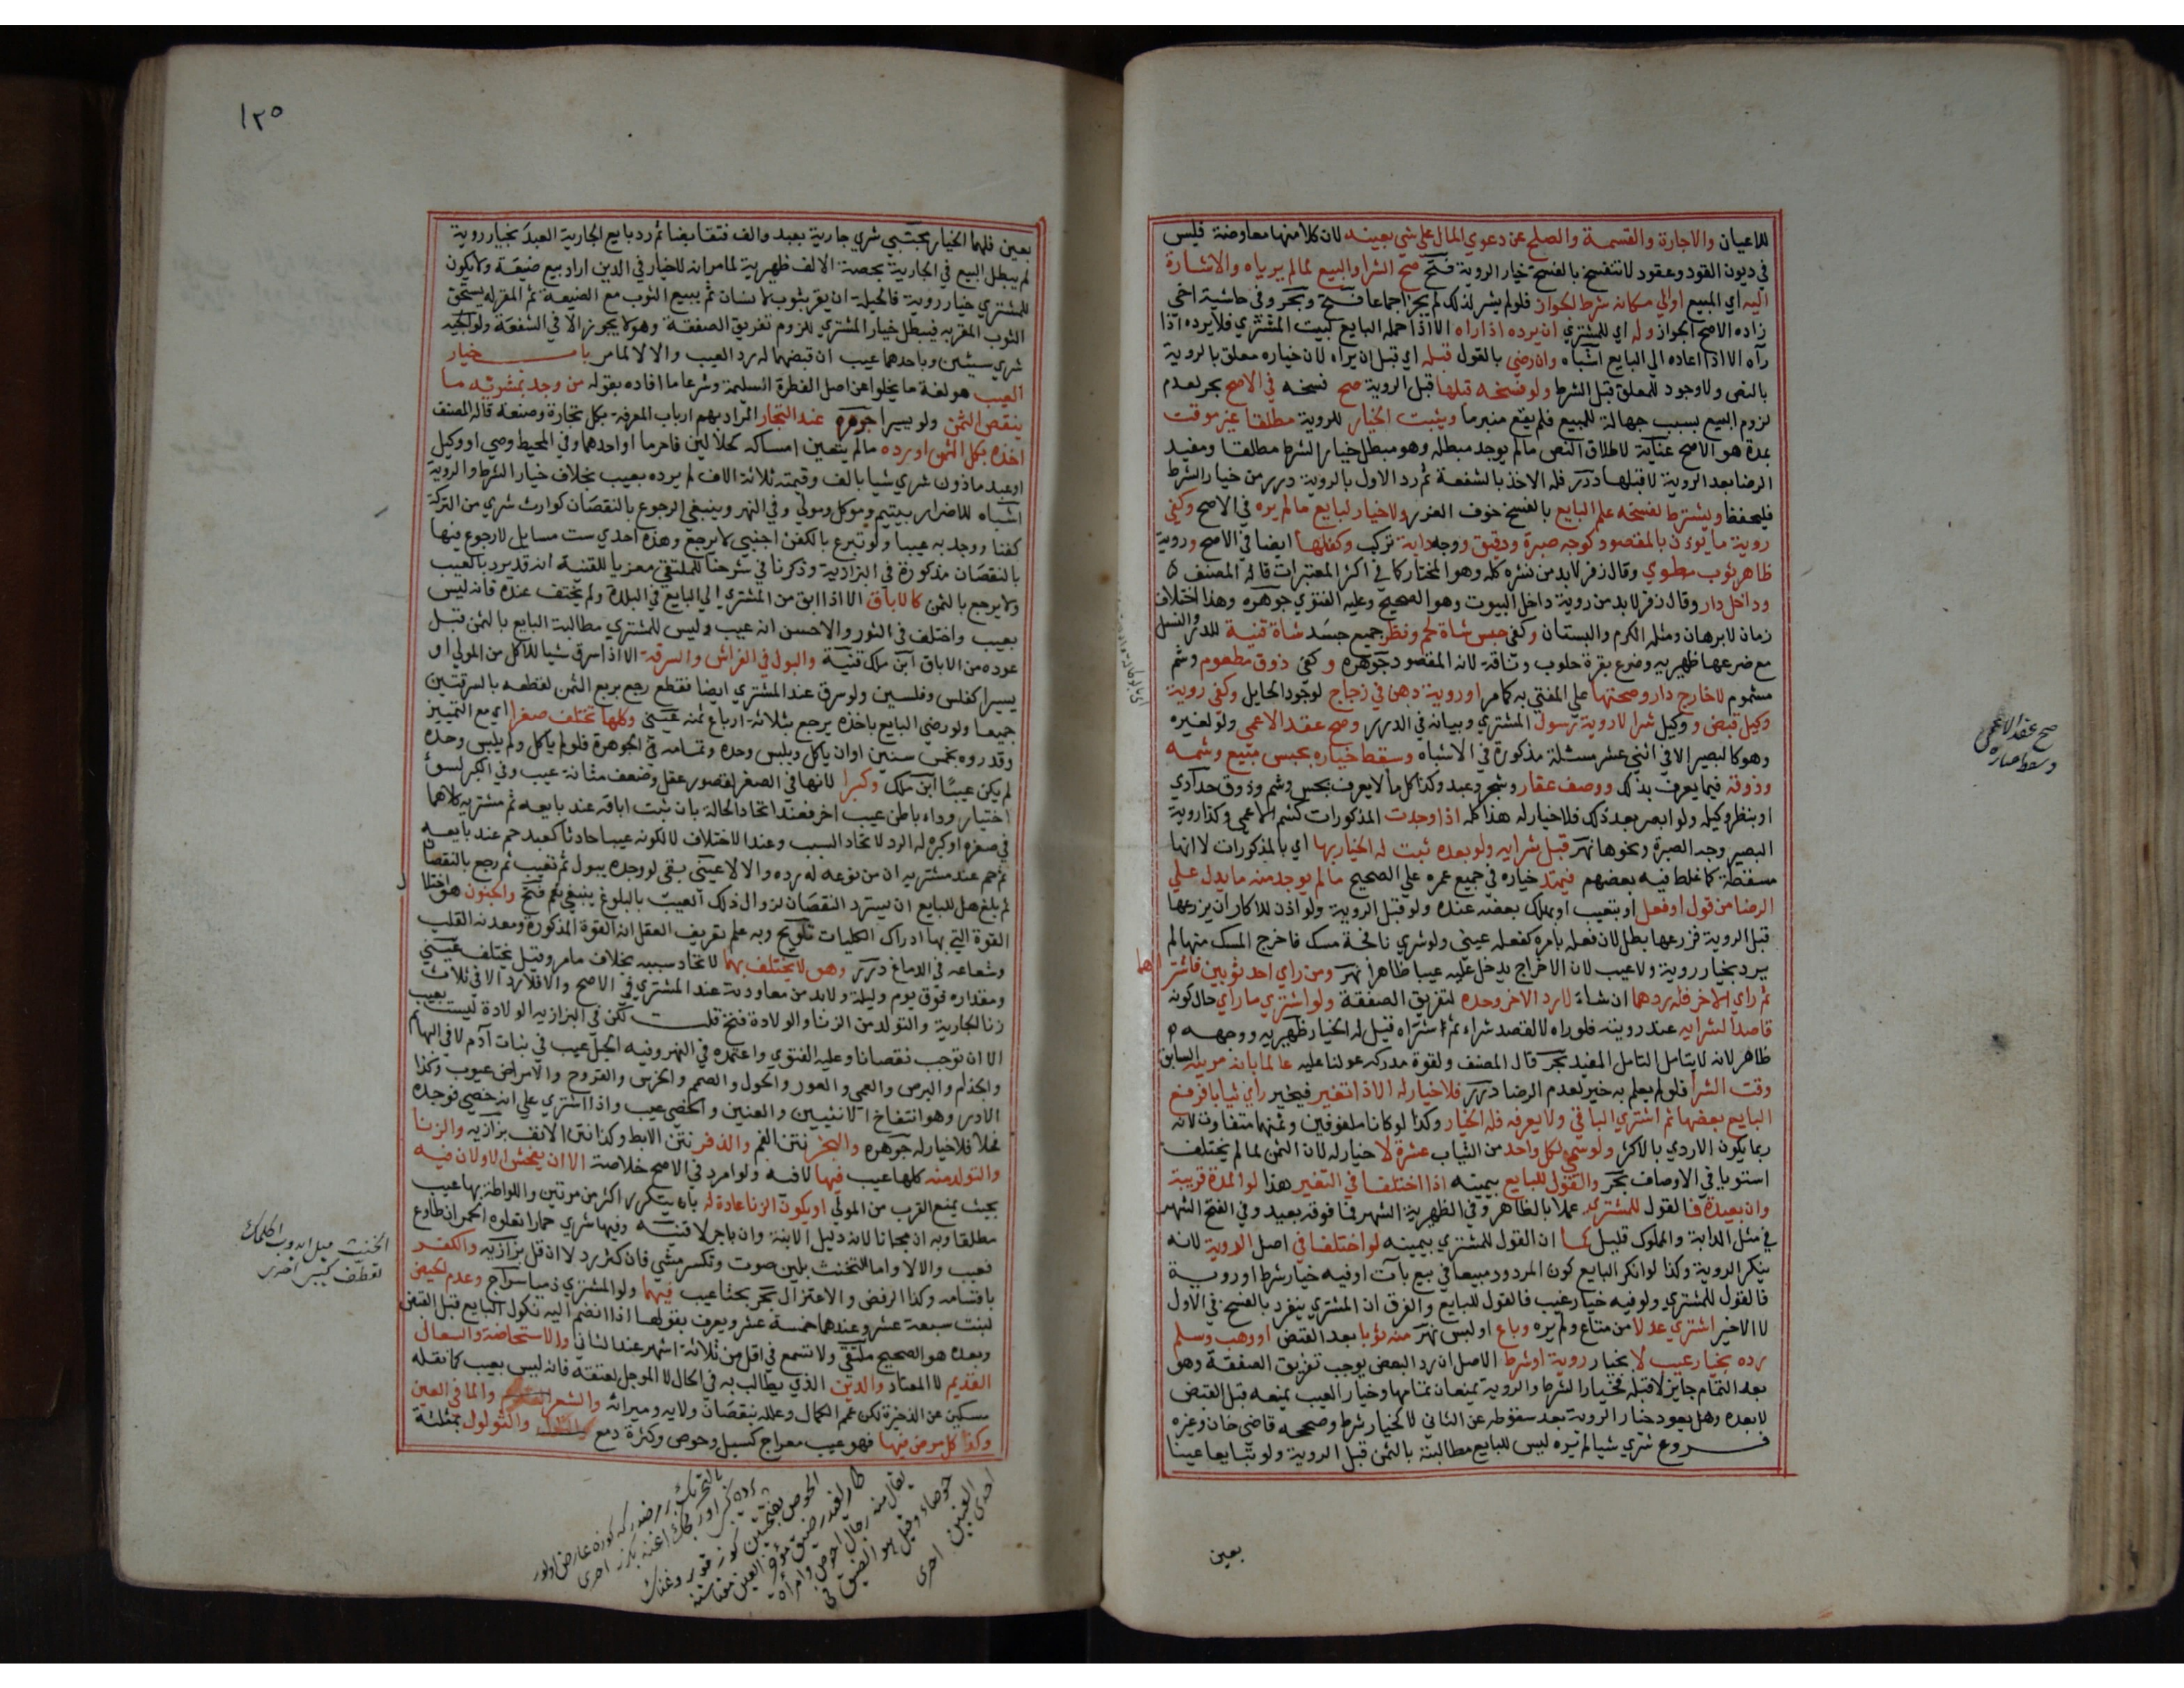 للاعيان والاجارة والقسمة والصلح عن دعوي المال علي شي بعينه لان كلا منها معاوضة فليس
في ديون القود وعقود لاتنفسخ بالفسخ خيار الروية فتح صح الشرا والبيع لما لم يرياه والاشارة
اليه اي المبيع او الي مكانه شرط الجواز فلو لم يشر لذلك لم يجز اجماعا فتح وبحر وفي حاشية اخي
زاده الاصح الجواز وله اي للمشتري ان يرده اذا راه الا اذا حمله البايع لبيت المشتري فلا يرده اذا
رآه الا اذا اعاده الي البايع اشباه وان رضي بالقول قبله اي قبل ان يراه لان خياره معلق بالروية
بالنص ولا وجود للمعلق قبل الشرط ولو فسخه قبلها قبل الروية صح فسخه في الاصح بحر لعدم
لزوم البيع بسبب جهالة المبيع فلم يقع منبرما ويثبت الخيار للروية مطلقا غير موقت
بمدة هو الاصح عناية لاطلاق النص مالم يوجد مبطله وهو مبطل خيار الشرط مطلقا ومفيد
الرضا بعد الروية لاقبلها درر فله الاخذ بالشفعة ثم رد الاول بالروية درر من خيار الشرط
فليحفظ ويشترط لفسخه علم البايع بالفسخ خوف الغرر ولا خيار لبايع مالم يره في الاصح وكفي
روية ما يوذن بالمقصود كوجه صبرة ورقيق ووجه دابة تركب وكفلها ايضا في الاصح وروية
ظاهر ثوب مطوي وقال زفر لابد من نشره كله وهو المختار كما في اكثر المعتبرات قاله المصنف
وداخل دار وقال زفر لابد من روية داخل البيوت وهو الصحيح وعليه الفتوي جوهره وهذا اختلاف
زمان لابرهان ومثله الكرم والبستان وكفي حبس شاة لحم ونظر جميع جسد شاة قنية للدر والنسل
مع ضرعها ظهيريه وضرع بقرة حلوب وناقة لانه المقصود جوهره وكفي ذوق مطعوم وشم
مشموم لا خارج دار وصحنها علي المفتي به كما مر او روية دهن في زجاج لوجود الحايل وكفي روية
وكيل قبض ووكيل شرا لا روية رسول المشتري وبيانه في الدرر وصح عقد الاعمي ولو لغيره
وهو كالبصير الا في اثني عشر مسئلة مذكورة في الاشباه وسقط خياره بجس مبيع وشمه
وذوقه فيما يعرف بذلك ووصف عقار وشجر وعبد وكذا كل ما لا يعرف بجس وشم وذوق حدادي
او بنظر وكيله ولو ابصر بعد ذلك فلا خيار له هذا كله اذا وجدت المذكورات كشم الاعمي وكذا روية
البصير وجه الصبرة ونحوها نهر قبل شرايه ولو بعده ثبت له الخيار بها اي بالمذكورات لا انها
مسقطة كما غلط فيه بعضهم فيمتد خياره في جميع عمره علي الصحيح مالم يوجد منه ما يدل علي
الرضا من قول او فعل او يتعيب او يهلك بعضه عنده ولو قبل الروية ولو اذن للاكار ان يزرعها
قبل الروية فزرعها بطل لان فعله بامره كفعله عيني ولو شري نافجة مسك فاخرج المسك منها لم
يرد بخيار روية ولا عيب لان الاخراج يدخل عليه عيبا ظاهرا نهر ومن راي احد ثوبين فاشتراهما
ثم راي الاخر فله ردهما ان شاء لا رد الاخر وحده لتفريق الصفقة ولو اشتري ما راي حال كونه
قاصدا لشرايه عند رويته فلو راه لا لقصد شراء ثم اشتراه قيل له الخيار ظهيريه ووجهه
ظاهر لانه لا يتامل التامل المفيد بحر قال المصنف ولقوة مدركه عولنا عليه عالما بانه مرييه السابق
وقت الشرا فلو لم يعلم به خير لعدم الرضا درر فلا خيار له الا اذا تغير فيخير راي ثيابا فرفع
البايع بعضها ثم اشتري الباقي ولا يعرفه فله الخيار وكذا لو كانا ملفوفين وثمنها متفاوت لانه
ربما يكون الاردي بالاكثر ولو سمي لكل واحد من الثياب عشرة لا خيار له لان الثمن لما لم يختلف
استويا في الاوصاف بحر والقول للبايع بيمينه اذا اختلفا في التغير هذا لو المدة قريبة
وان بعيدة فالقول للمشتري عملا بالظاهر وفي الظهيرية الشهر فما فوقه بعيد وفي الفتح الشهر
في مثل الدابة والمملوك قليل كما ان القول للمشتري بيمينه لو اختلفا في اصل الروية لانه
ينكر الروية وكذا لو انكر البايع كون المردود مبيعا في بيع بات او فيه خيار شرط او روية
فالقول للمشتري ولو فيه خيار عيب فالقول للبايع والفرق ان المشتري ينفرد بالفسخ في الاول
لا الاخير اشتري عدلا من متاع ولم يره وباع او لبس نهر منه ثوبا بعد القبض او وهب وسلم
رده بخيار عيب لا بخيار روية او شرط الاصل ان رد البعض يوجب تفريق الصفقة وهو
بعد التمام جايز لا قبله فخيار الشرط والروية يمنعان تمامها وخيار العيب يمنعه قبل القبض
لا بعده وهل يعود خيار الروية بعد سقوطه عن الثاني لا كخيار شرط وصححه قاضي خان وغيره
فروع شري شيا لم يره ليس للبايع مطالبته بالثمن قبل الروية ولو تبايعا عينا
بعين
صح عقد الاعمي
وسقط خياره
١٢٥
بعين فلهما الخيار مجتبي شري جارية بعبد والف فتقابضا ثم رد بايع الجارية العبد بخيار روية
لم يبطل البيع في الجارية بحصة الالف ظهيرية لما مر انه لا خيار في الدين اراد بيع ضيعة ولا يكون
للمشتري خيار روية فالحيلة ان يقر بثوب لانسان ثم يبيع الثوب مع الضيعة ثم المقر له يستحق
الثوب المقر به فيبطل خيار المشتري للزوم تفريق الصفقة وهو لا يجوز الا في الشفعة ولوالجيه
شري شيئين وباحدهما عيب ان قبضهما له رد العيب والا لا لما مر باب خيار
العيب هو لغة ما يخلوا عن اصل الفطرة السليمة وشرعا ما افاده بقوله من وجد بمشريه ما
ينقص الثمن ولو يسيرا جوهره عند التجار المراد بهم ارباب المعرفة بكل تجارة وصنعه قاله المصنف
اخذه بكل الثمن او رده مالم يتعين امساكه كحلالين فاحرما او احدهما وفي المحيط وصي او وكيل
او عبد ماذون شري شيا بالف وقيمته ثلاثة الاف لم يرده بعيب بخلاف خيار الشرط والروية
اشباه للاضرار بيتيم وموكل ومولي وفي النهر وينبغي الرجوع بالنقصان كوارث شري من التركة
كفنا ووجد به عيبا ولو تبرع بالكفن اجنبي لا يرجع وهذه احدي ست مسايل لا رجوع فيها
بالنقصان مذكورة في البزازية وذكرنا في شرحنا للملتقي معزيا للقنية انه قد يرد بالعيب
ولا يرجع بالثمن كالاباق الا اذا ابق من المشتري الي البايع في البلدة ولم يختف عنده فانه ليس
بعيب واختلف في الثور والاحسن انه عيب وليس للمشتري مطالبة البايع بالثمن قبل
عوده من الاباق ابن ملك قنية والبول في الفراش والسرقة الا اذا سرق شيا للاكل من المولي او
يسيرا كفلس وفلسين ولو سرق عند المشتري ايضا فقطع رجع بربع الثمن لقطعه بالسرقتين
جميعا ولو رضي البايع باخذه يرجع بثلاثة ارباع ثمنه عيني وكلها تختلف صغرا اي مع التمييز
وقدروه بخمس سنين او ان ياكل ويلبس وحده وتمامه في الجوهرة فلو لم ياكل ولم يلبس وحده
لم يكن عيبا ابن ملك وكبرا لانها في الصغر لقصور عقل وضعف مثانة عيب وفي الكبر لسوء
اختيار وداء باطن عيب اخر فعند اتحاد الحالة بان ثبت اباقه عند بايعه ثم مشتريه كلاهما
في صغره او كبره له الرد لاتحاد السبب وعند الاختلاف لا لكونه عيبا حادثا كعبد حم عند بايعه
ثم حم عند مشتريه ان من نوعه له رده والا لا عيني بقي لو وجده يبول ثم تعيب ثم رجع بالنقصان
ثم بلغ هل للبايع ان يسترد النقصان لزوال ذلك العيب بالبلوغ ينبغي نعم فتح والجنون هو اختلال
القوة التي بها ادراك الكليات تلويح وبه علم تعريف العقل انه القوة المذكورة ومعدنه القلب
وشعاعه في الدماغ درر وهو لا يختلف بهما لاتحاد سببه بخلاف ما مر وقيل يختلف عيني
ومقداره فوق يوم وليلة ولابد من معاودته عند المشتري في الاصح والا فلا رد الا في ثلاث
زنا الجارية والتولد من الزنا والولادة فتح قلت لكن في البزازيه الولادة ليست بعيب
الا ان توجب نقصانا وعليه الفتوي واعتمده في النهر وفيه الحبل عيب في بنات آدم لا في البهايم
والجذام والبرص والعمي والعور والحول والصمم والخرس والقروح والامراض عيوب وكذا
الادر وهو انتفاخ الانثيين والعنين والخصي عيب واذا اشتري علي انه خصي فوجده
فحلا فلا خيار له جوهره والبخر نتن الفم والذفر نتن الابط وكذا نتن الانف بزازيه والزنا
والتولد منه كلها عيب فيها لا فيه ولو امرد في الاصح خلاصة الا ان يفحش الاولان فيه
بحيث يمنع القرب من المولي او يكون الزنا عادة له بان يتكرر اكثر من مرتين واللواطة بها عيب
مطلقا وبه ان مجانا لانه دليل الابنة وان باجر لا قنيه وفيها شري حمارا تعلوه الحمر ان طاوع
فعيب والا لا واما التخنث بلين صوت وتكسر مشي فان كثر رد لا ان قل بزازيه والكفر
باقسامه وكذا الرفض والاعتزال بحر بحثا عيب فيهما ولو المشتري ذميا سراج وعدم الحيض
لبنت سبعة عشر وعندهما خمسة عشر ويعرف بقولها اذا انضم اليه نكول البايع قبل القبض
وبعده هو الصحيح ملتقي ولا تسمع في اقل من ثلاثة اشهر عند الثاني والاستحاضة والسعال
القديم لا المعتاد والدين الذي يطالب به في الحال لا الموجل لعتقه فانه ليس بعيب كما نقله
مسكين عن الذخيرة لكن عمم الكمال وعلله بنقصان ولايه وميراثه والشعر والما في العين
وكذا كل مرض فيها فهو عيب معراج كسبل وحوص وكثرة دمع والثولول بمثلثة